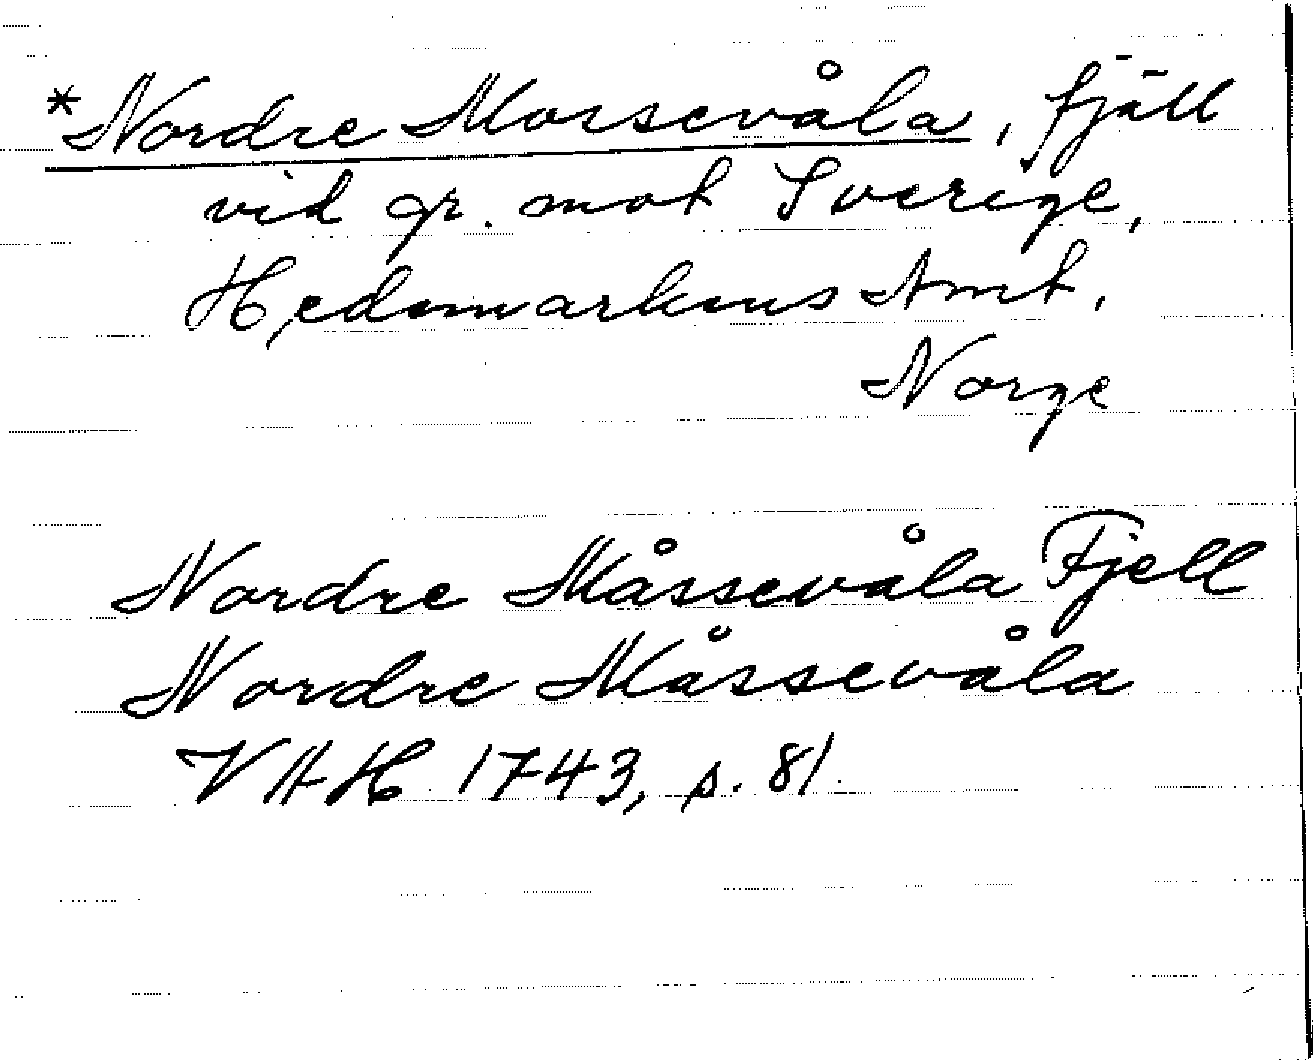 *Nordre Mossevåla, fjäll
vid gr. mot Sverige,
Hedemarkens Amt,
Norge
Nordre Måssevåla Fjell
Nordre Måssevåla
VAH 1743, p. 81.